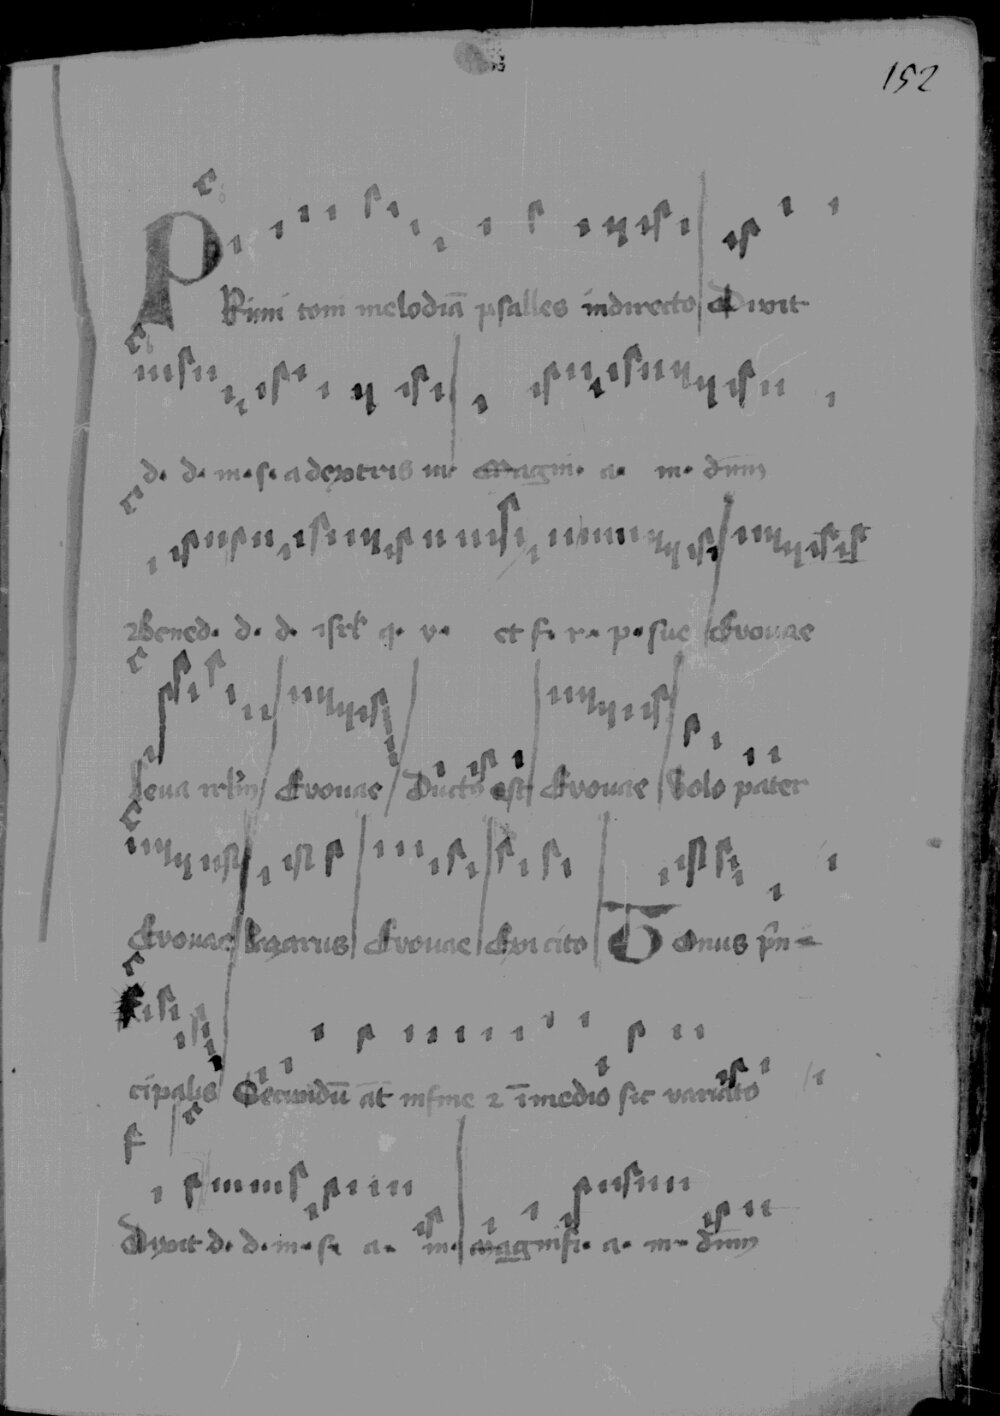 152
PRimi toni melodiā psalles indirecto Dixit
d. d. m. s. a dextris m. Magni. a. m. dnm
Bened. d. d. isrl q. v. et f. r. p. sue Evouae
Evouae Ductus est Evouae Volo pater
Evouae Lazarus Evouae Evouae Tonus prin-
cipalis Secundū at in fine ⁊ īmedio sic variato
Dixit d. d. m. s. a. m. Magnifi. a. m. dnm